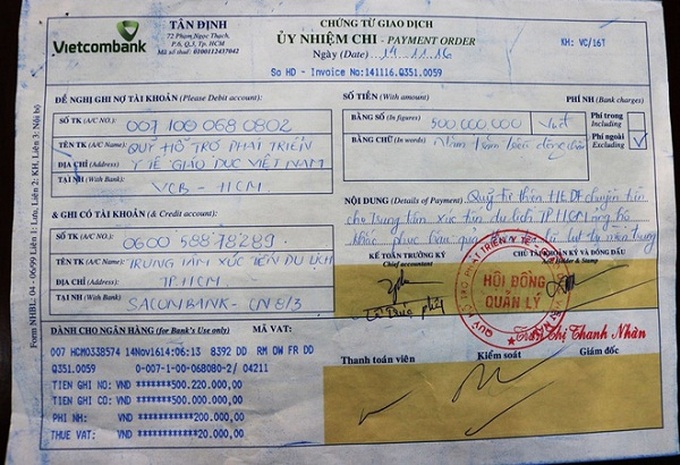 Vietcombank
TÂN ĐỊNH
72 Phạm Ngọc Thạch,
P.6, Q.3, Tp. HCM
Mã số thuế: 0100112437042
CHỨNG TỪ GIAO DỊCH
ỦY NHIỆM CHI - PAYMENT ORDER
Ngày (Date) 14.11.16
So HD - Invoice No:141116.Q351.0059
KH: VC/16T
Form NHBL: 04 - 06/99 Liên 1: Lưu, Liên 2: KH, Liên 3: Nội bộ
ĐỀ NGHỊ GHI NỢ TÀI KHOẢN (Please Debit account):
SỐ TK (A/C NO.): 007 100 068 0802
TÊN TK (A/C Name): QUỸ HỖ TRỢ PHÁT TRIỂN
ĐỊA CHỈ (Address) Y TẾ GIÁO DỤC VIỆT NAM
TẠI NH (With Bank): VCB - HCM
SỐ TIỀN (With amount)
BẰNG SỐ (In figures) 500 000 000
BẰNG CHỮ (In words) Năm trăm đồng
PHÍ NH (Bank charges)
Phí trong
Including
Phí ngoài
Excluding
& GHI CÓ TÀI KHOẢN (& Credit account):
SỐ TK (A/C NO.): 0600 588 78289
TÊN TK (A/C Name): TRUNG TÂM XÚC TIẾN DU LỊCH
ĐỊA CHỈ (Address): TP.HCM
TẠI NH (With Bank): SACOMBANK - CN 8/3
NỘI DUNG (Details of Payment) Quỹ từ thiện HEDF chuyển tiền
cho Trung tâm xúc tiến du lịch TP.HCM ủng hộ
khắc phục hậu quả lũ lụt miền trung
KẾ TOÁN TRƯỞNG KÝ
Chief accountant
CHỦ TÀI KHOẢN KÝ VÀ ĐÓNG DẤU
Holder & Stamp
QUỸ HỖ TRỢ PHÁT TRIỂN Y TẾ
HỘI ĐỒNG
QUẢN LÝ
Trần Thị Thanh Nhàn
DÀNH CHO NGÂN HÀNG (for Bank's Use only)
MÃ VAT:
007 HCM0338574 14Nov1614:06:13 8392 DD RM OW FR DD
Q351.0059 0-007-1-00-068080-2/ 04211
TIEN GHI NO: VND *******500.220.000,00
TIEN GHI CO: VND *******500.000.000,00
PHI NH: VND *******200.000,00
THUE VAT: VND ********20.000,00
Thanh toán viên
Kiểm soát
Giám đốc